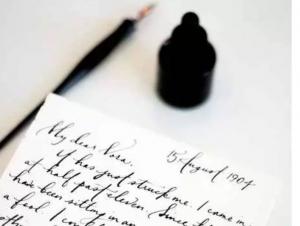 My dear Nora, 15 August 1904
It has just struck me. I came in
at half past eleven. Since then I
have been sitting in an
a fool. I could